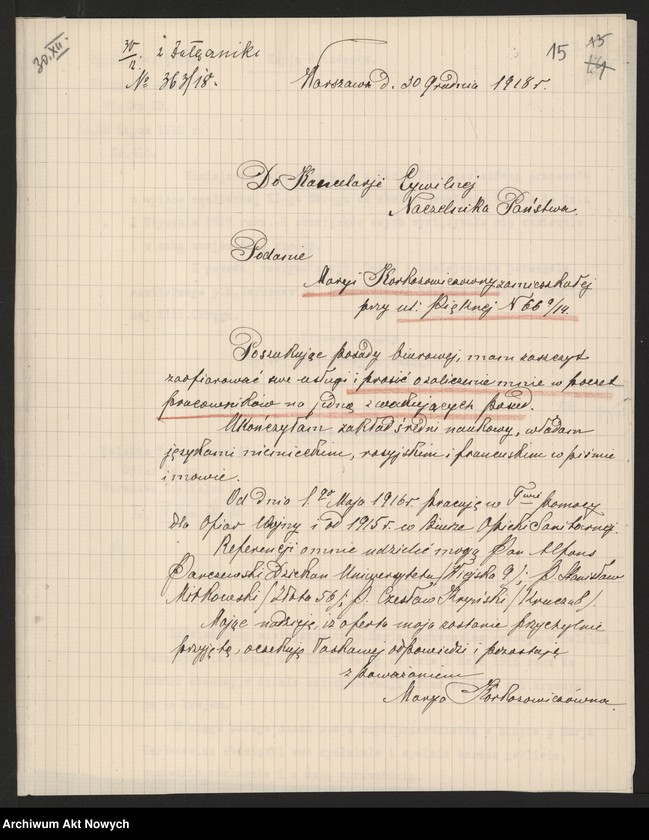 30.XII.
30/12. z załącznik
№ 363/18.
15
Warszawa d. 30 Grudnia 1918 r.
Do Kancelarji Cywilnej
Naczelnika Państwa.
Podanie
Maryi Korkozowiczówny zamieszkałej
przy ul. Pięknej N 66 9/14.
Poszukując posady biurowej, mam zaszczyt
zaofiarować swe usługi i prosić o zaliczenie mnie w poczet
pracowników na jedną z wakujących posad.
Ukończyłam zakład średni naukowy, władam
językami niemieckim, rosyjskim i francuskim w piśmie
i mowie.
Od dnia 1go Maja 1916 r. pracuję w Twie pomocy
dla Ofiar Wojny i od 1915 r. w Biurze Opieki Sanitarnej.
Referencji o mnie udzielić mogą Pan Alfons
Parczewski Dziekan Uniwersytetu /Wiejska 9/; P. Stanisław
Mitkowski /Złota 56/; P. Czesław /Krucza 6/.
Mając nadzieję, iż oferta moja zostanie przychylnie
przyjętą, oczekuję łaskawej odpowiedzi i pozostaję
z poważaniem
Marya Korkozowiczówna.
Archiwum Akt Nowych